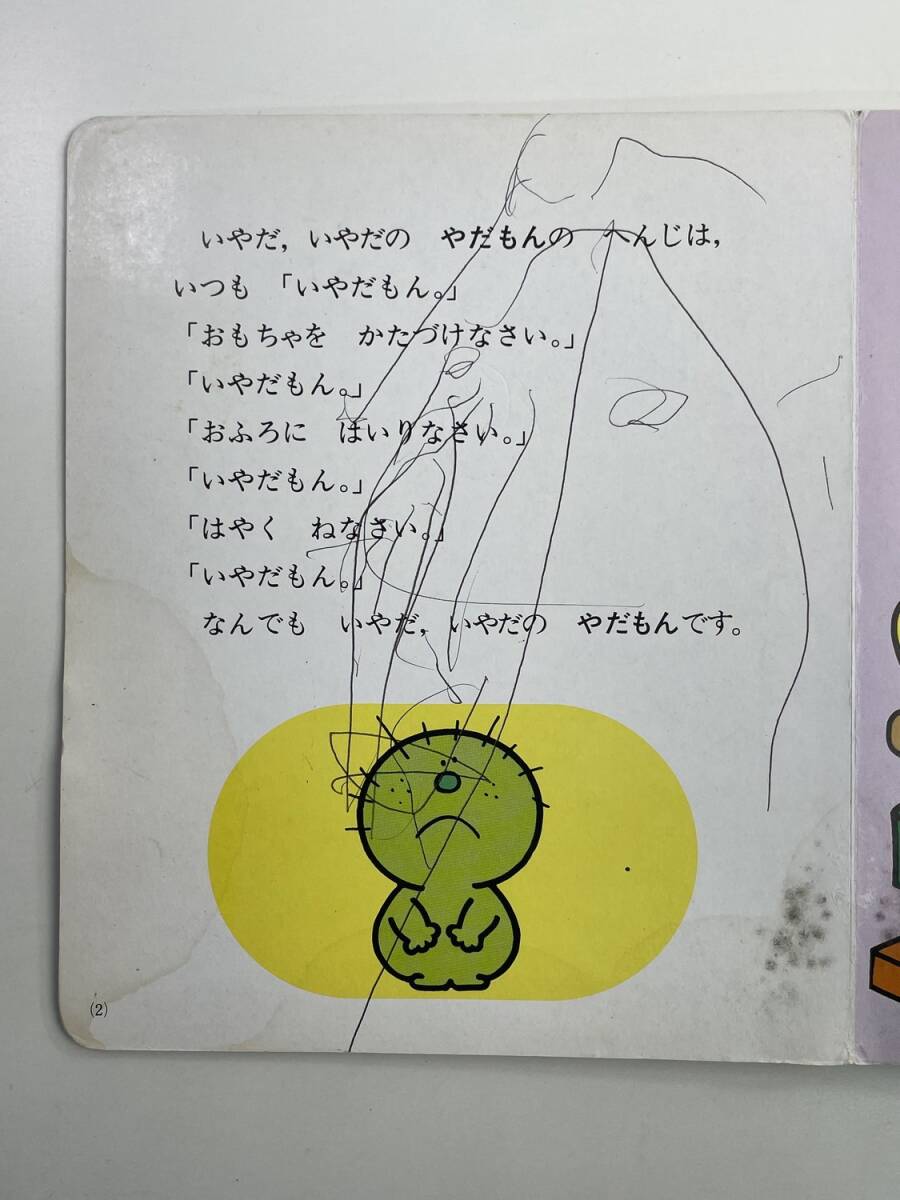 いやだ，いやだの　やだもんの　へんじは，
いつも　「いやだもん。」
「おもちゃを　かたづけなさい。」
「いやだもん。」
「おふろに　はいりなさい。」
「いやだもん。」
「はやく　ねなさい。」
「いやだもん。」
なんでも　いやだ，いやだの　やだもんです。
(2)